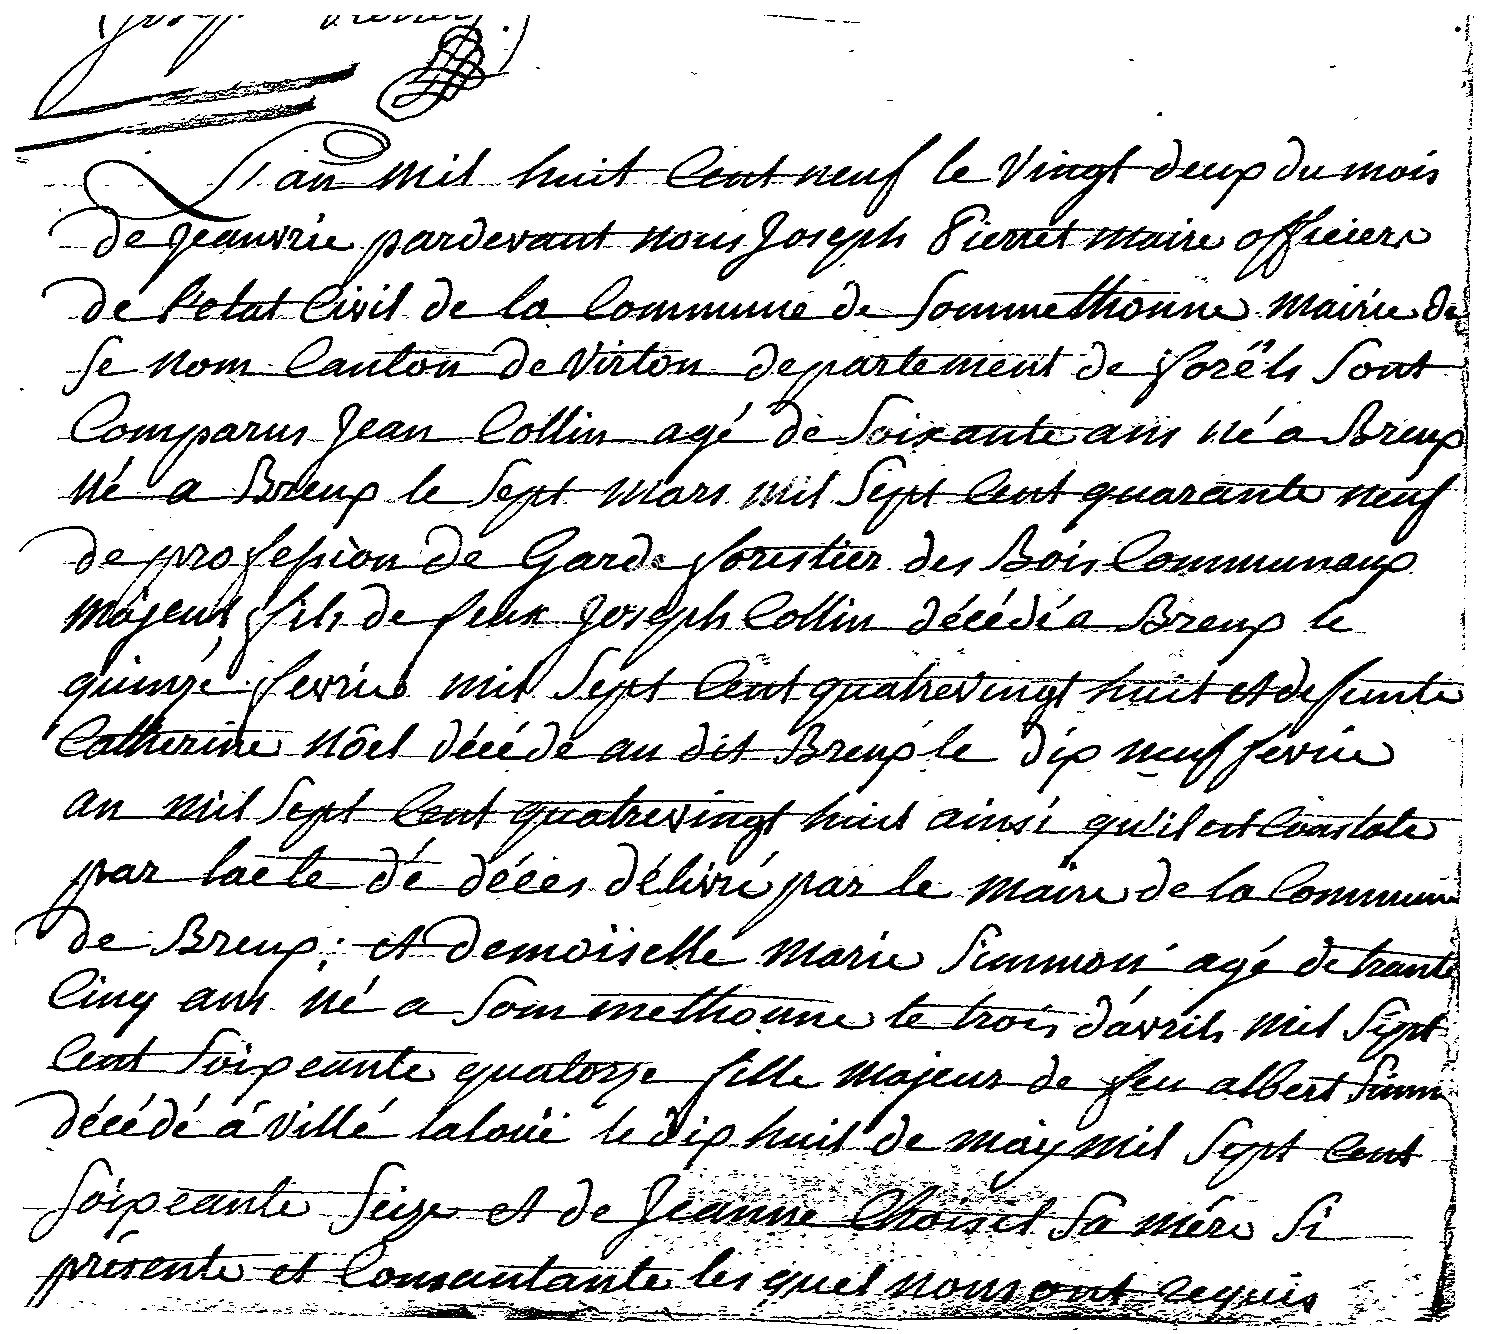 Joseph Pierret
L'an mil huit Cent neuf le vingt deux du mois
de Jeanvrie pardevant nous Joseph Pierret maire officiers
de l'etat Civil de la Commune de Sommethonne mairie de
se nom Canton de Virton departement de forêts sont
Comparus Jean Collin agé de Soixante ans né a Breux
né a Breux le Sept mars mil Sept Cent quarante neuf
de profession de Garde forestier des Bois Communaux
majeur fils de feux Joseph Collin décédé a Breux le
quinzé fevrie mil Sept Cent quatrevingt huit et defunte
Catherine Nôel décédé au dit Breux le dix neuf fevrie
an mil Sept Cent quatrevingt huit ainsi qu'il est Constate
par lacte dé décés délivré par le maire de la Commune
de Breux; et demoiselle marie agé de trante
Cinq ans né a Sommethonne le trois d'avrils mil Sept
Cent Soixeante quatorze fille majeur de feu albert
décédé á villé laloüe le dix huit de may mil Sept Cent
Soixeante Seize et de Jeanne Choisel Sa mére Si
présente et Consantante les quel nous ont requis